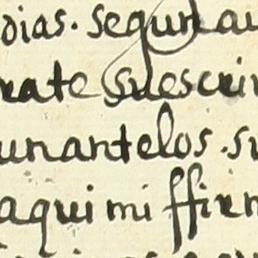 oias. segun au
rate suescrir
unantelos. su
aqui mi ffirm